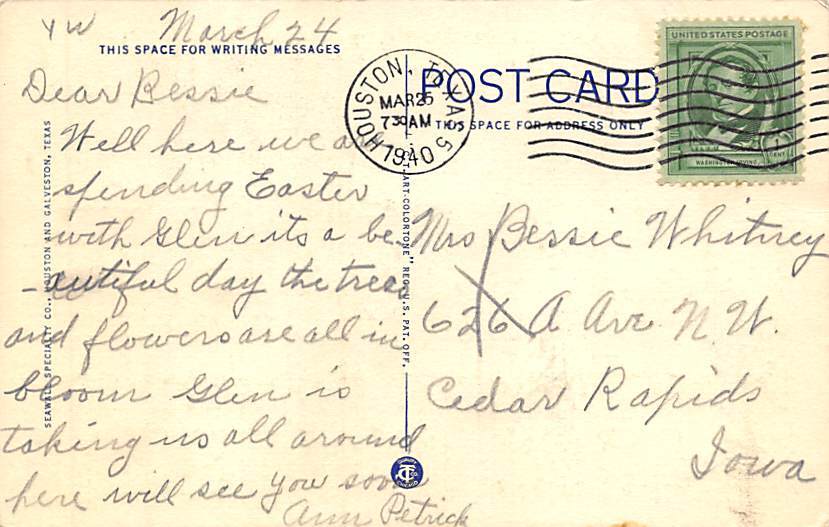 YW March 24
THIS SPACE FOR WRITING MESSAGES
Dear Bessie
Well here we are
spending Easter
with Glen its a be
-autiful day the trees
and flowers are all in
bloom Glen is
taking us all around
here will see you soon
Ann Petrick
SEAWALL SPECIALTY CO., HOUSTON AND GALVESTON, TEXAS
ART-COLORTONE" REG. U.S. PAT. OFF.
HOUSTON, TEXAS
MAR 25
730 AM
1940
5
POST CARD
THIS SPACE FOR ADDRESS ONLY
UNITED STATES POSTAGE
WASHINGTON IRVING
1 CENT
Mrs Bessie Whitney
626 A Ave. N. W.
Cedar Rapids
Iowa